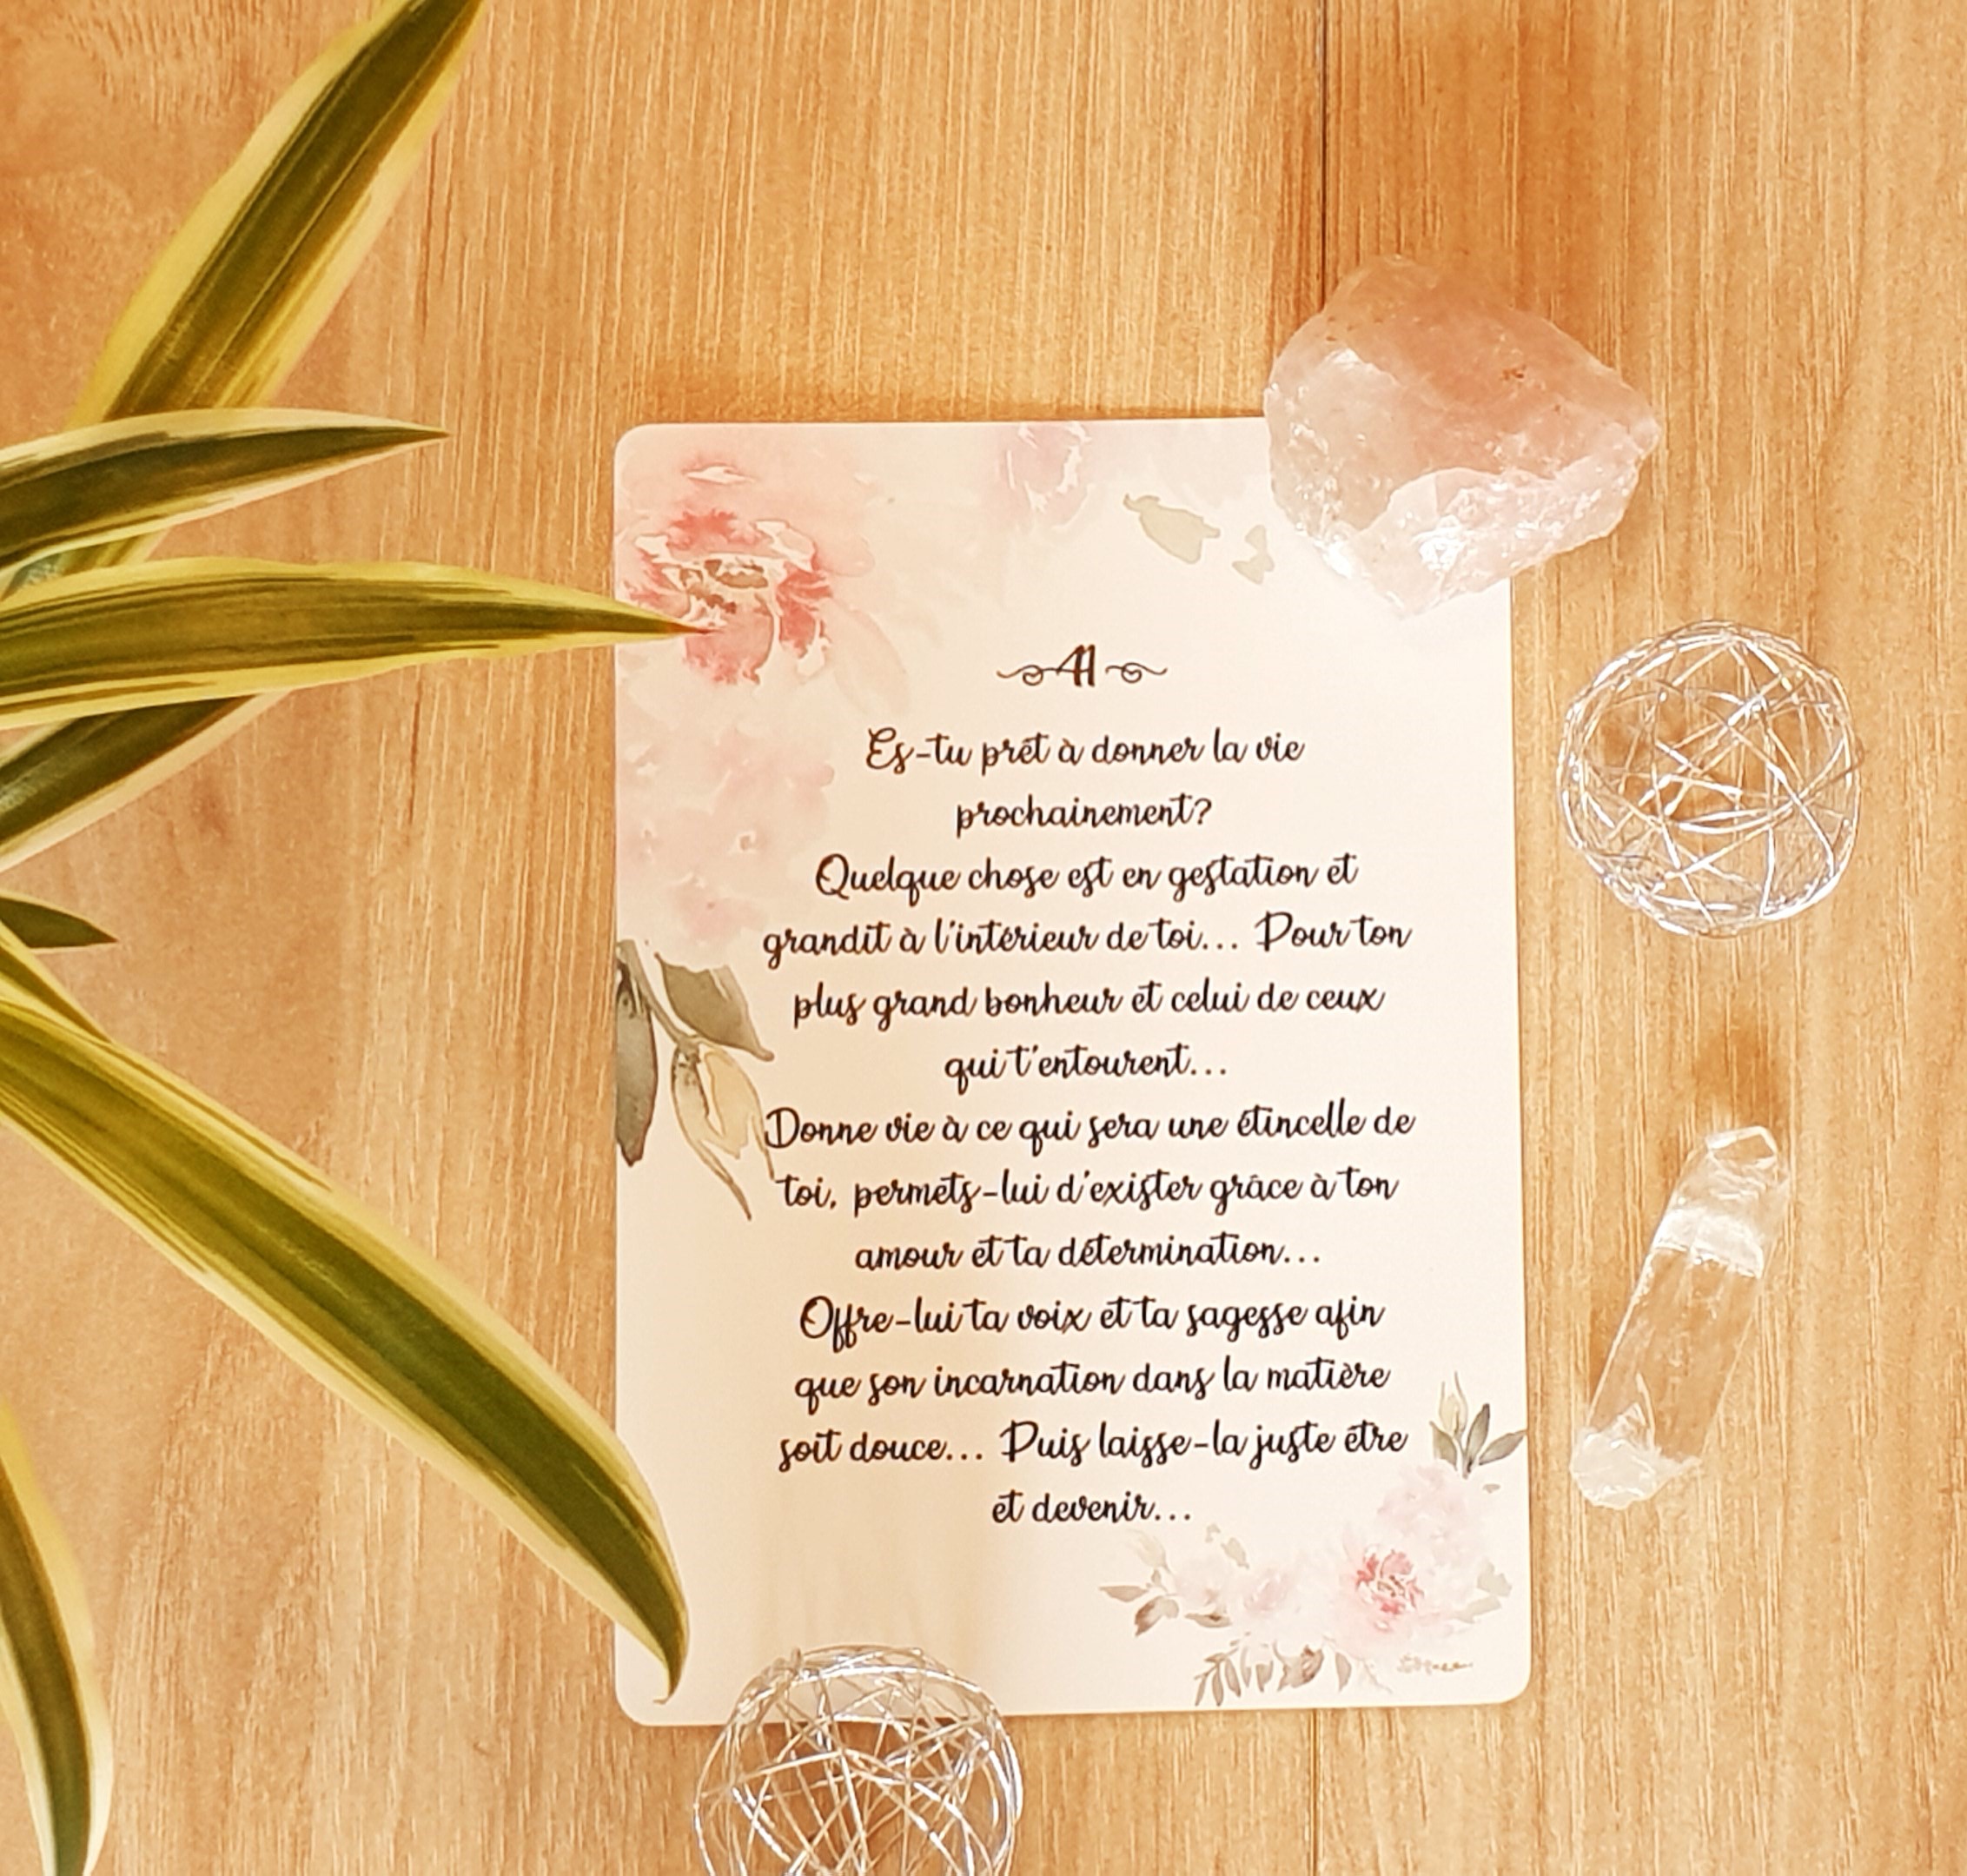 41
Es-tu prêt à donner la vie
prochainement?
Quelque chose est en gestation et
grandit à l'intérieur de toi... Pour ton
plus grand bonheur et celui de ceux
qui t'entourent...
Donne vie à ce qui sera une étincelle de
toi, permets-lui d'exister grâce à ton
amour et ta détermination...
Offre-lui ta voix et ta sagesse afin
que son incarnation dans la matière
soit douce... Puis laisse-la juste être
et devenir...